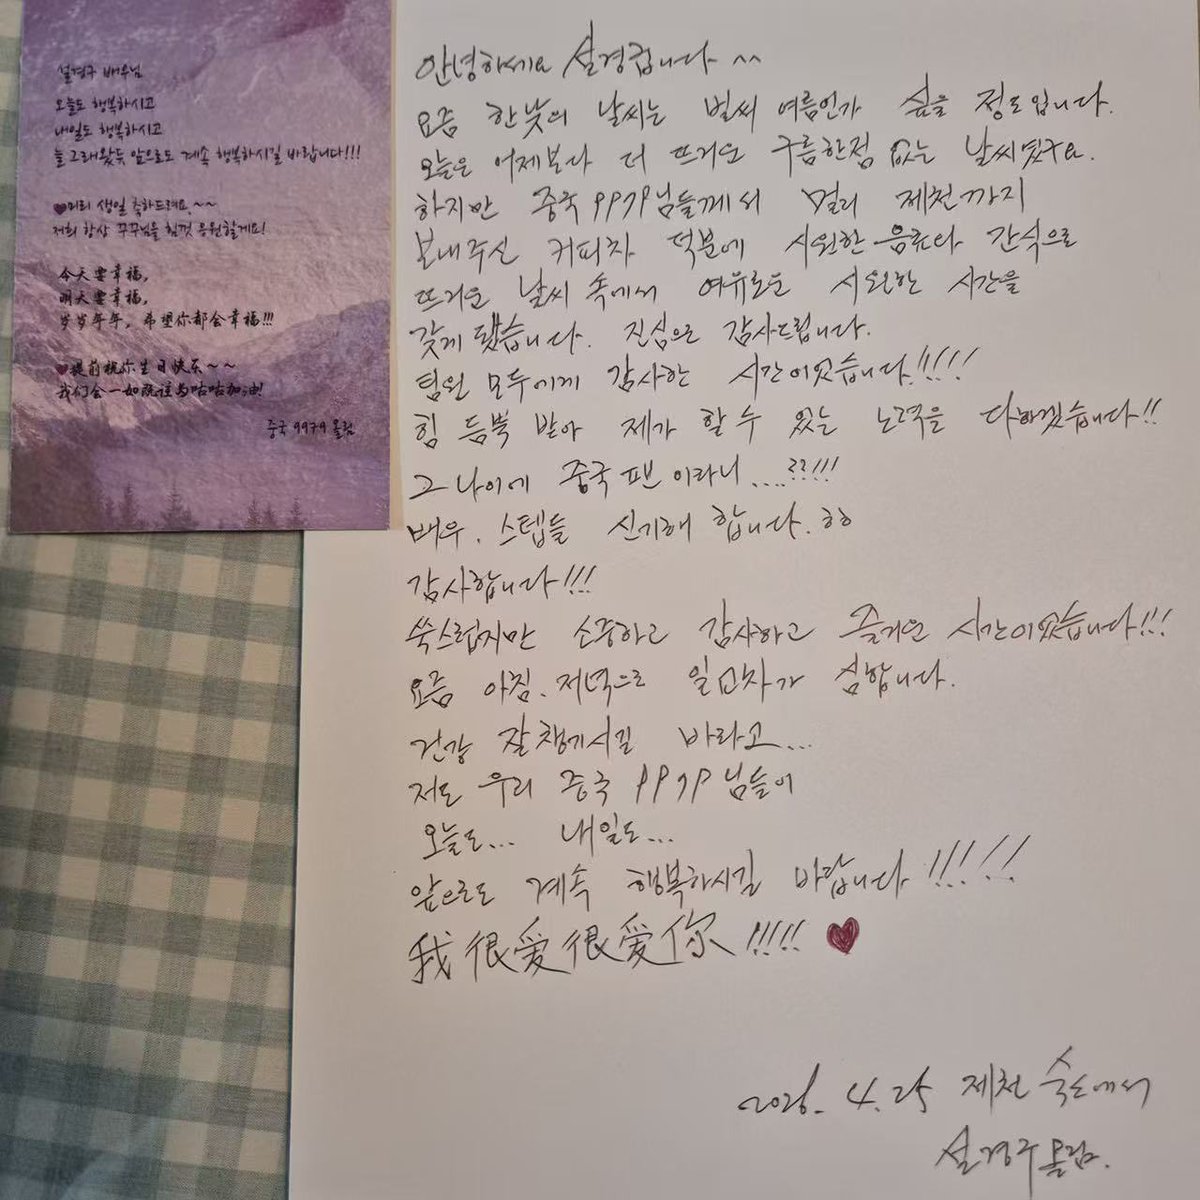 설경구 배우님
오늘도 행복하시고
내일도 행복하시고
늘 그래왔듯 앞으로도 계속 행복하시길 바랍니다!!!
♥미리 생일 축하드려요~~
저희 항상 꾸꾸님을 힘껏 응원할게요!
今天要幸福,
明天要幸福,
岁岁年年, 希望你都会幸福!!!
♥提前祝你生日快乐~~
我们会一如既往为咕咕加油!
중국 9979 올림
안녕하세요 설경굽니다 ^^
요즘 한낮의 날씨는 벌써 여름인가 싶을 정도입니다.
오늘은 어제보다 더 뜨거운 구름한점 없는 날씨였구요.
하지만 중국 9979님들께서 멀리 제천까지
보내주신 커피차 덕분에 시원한 음료와 간식으로
뜨거운 날씨 속에서 여유로운 시원한 시간을
갖게 됐습니다. 진심으로 감사드립니다.
팀원 모두에게 감사한 시간이었습니다!!!!
힘 듬뿍 받아 제가 할 수 있는 노력을 다하겠습니다!!
그 나이에 중국 팬이라니....??!!!
배우. 스텝들 신기해 합니다.ㅎㅎ
감사합니다!!!
쑥스럽지만 소중하고 감사하고 즐거운 시간이었습니다!!!
요즘 아침.저녁으로 일교차가 심합니다.
건강 잘 챙기시길 바라고...
저도 우리 중국 9979님들이
오늘도... 내일도...
앞으로도 계속 행복하시길 바랍니다!!!!!
我很爱很爱你!!!!! ♥
2026. 4.25 제천 숙소에서
설경구 올림.